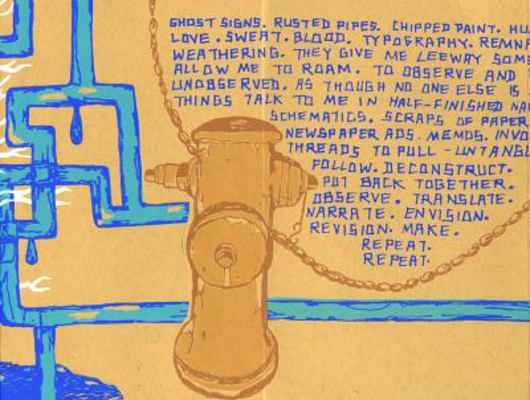 GHOST SIGNS. RUSTED PIPES. CHIPPED PAINT.
LOVE. SWEAT. BLOOD. TYPOGRAPHY.
WEATHERING. THEY GIVE ME LEEWAY
ALLOW ME TO ROAM. TO OBSERVE AND
UNOBSERVED. AS THOUGH NO ONE ELSE IS
THINGS TALK TO ME IN HALF-FINISHED
SCHEMATICS. SCRAPS OF PAPER
NEWSPAPER ADS. MEMOS.
THREADS TO PULL - UNTANGL
FOLLOW. DECONSTRUCT.
PUT BACK TOGETHER.
OBSERVE. TRANSLATE.
NARRATE. ENVISION.
REVISION. MAKE.
REPEAT.
REPEAT.